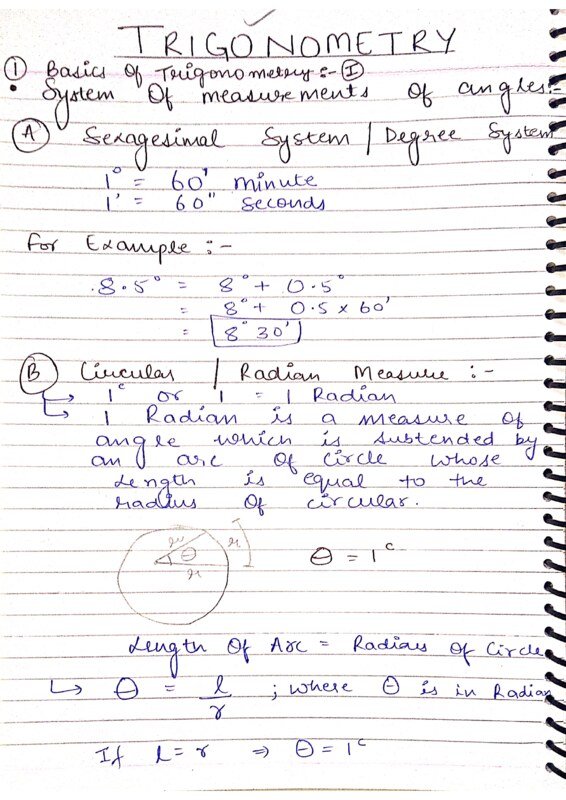 TRIGONOMETRY
① Basics of Trigonometry:- Ⓘ
• System Of measurements Of angles:-
Ⓐ Sexagesimal System / Degree System
1° = 60' minute
1' = 60" Seconds
For Example :-
8.5° = 8° + 0.5°
= 8° + 0.5 x 60'
= 8° 30'
Ⓑ Circular / Radian Measure :-
→ 1ᶜ or 1 = 1 Radian
↳ 1 Radian is a measure of
angle which is subtended by
an arc Of Circle whose
Length is equal to the
radius Of circular.
r θ r r
θ = 1ᶜ
Length Of Arc = Radius Of Circle
↳ θ = l/r ; where θ is in Radian
If l = r ⇒ θ = 1ᶜ